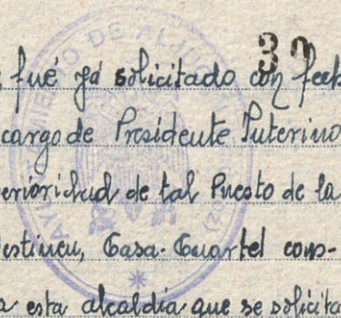 39
fué yá solicitado con fech
cargo de Presidente Interino
erioridad de tal Puesto de la
destineu, Casa-Cuartel cons-
a esta alcaldía que se solicita